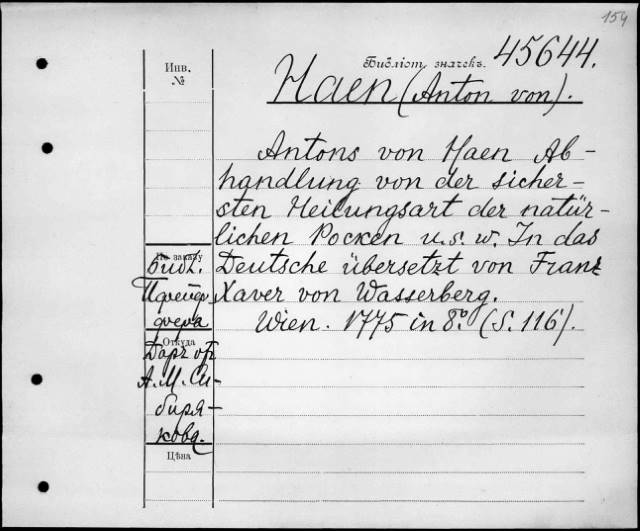 154
Библіот. значекъ. 45644.
Инв.
№
Haen (Anton von).
Antons von Haen Ab-
handlung von der sicher-
sten Heilungsart der natür-
lichen Pocken u.s.w. In das
Deutsche übersetzt von Franz
Xaver von Wasserberg.
Wien. 1775 in 8º. (S. 116).
По заказу
Библ.
Откуда
Даръ
А. М. Си-
биря-
кова.
Цѣна